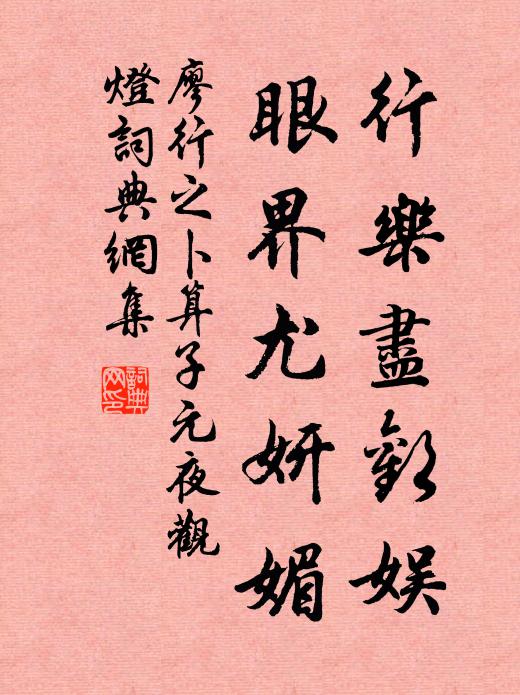 行樂盡歡娛
眼界尤妍媚
廖行之卜算子元夜觀
燈詞典網集
詞典網印